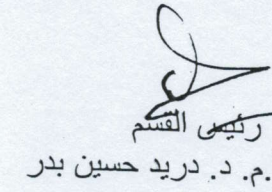 رئيس القسم
م. د. دريد حسين بدر.